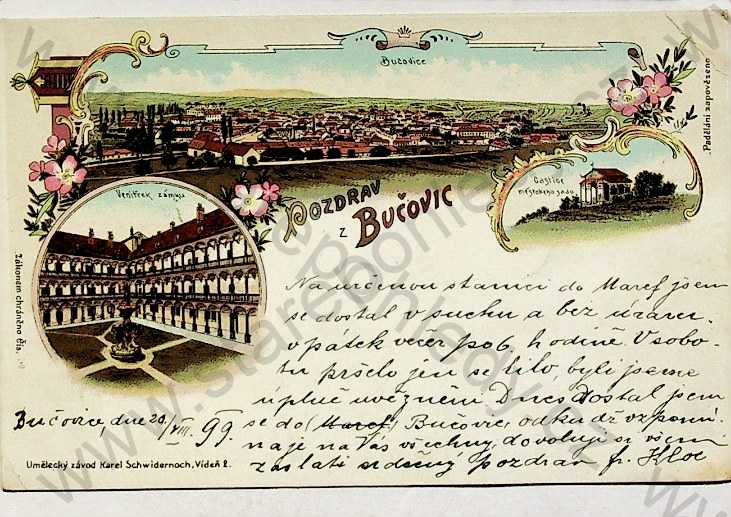 Bučovice
Padělání zapovězeno.
Častice
městského sadu
Vnitřek zámku
POZDRAV
z
BUČOVIC
Zákonem chráněno čís.
Na určenou stanici do Maref jsem
se dostal v suchu a bez úrazu
v pátek večer po 6. hodině. V sobo-
tu pršelo jen se lilo, byli jsme
úplně uvězněni Dnes dostal jsem
se do (Maref) Bučovic, odkudž vzpomí-
naje na Vás všechny, dovoluji si všem
zaslati srdečný pozdrav fr. Kloc
Bučovice dne 20/VIII. 99.
Umělecký závod Karel Schwidernoch, Vídeň 2.
www.starepohledy.cz